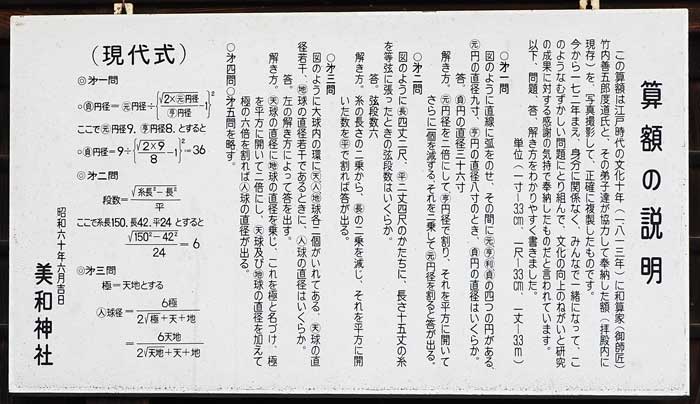 算額の説明
この算額は江戸時代の文化十年（一八一三年）に和算家（御師匠）
竹内善五郎度道氏と、その弟子達が協力して奉納した額（拝殿内に
現存）を、写真撮影して、正確に複製したものです。
今から一七二年まえ、身分に関係なく、みんなで一緒になって、こ
のようなむずかしい問題にとり組んで、文化の向上のねがいと研究
の成果に対する感謝の気持で奉納したものだと言われています。
以下、問題、答、解き方をわかりやすく書きました。
単位（一寸―33cm、一尺―33cm、一丈―33m）
○第一問
図のように直線に弧をのせ、その間に元亨利貞の四つの円がある。
元円の直径九寸、亨円の直径八寸のとき、貞円の直径はいくらか。
答。貞円の直径三十六寸
解き方。元円径を二倍にして亨円径で割り、それを平方に開いて
さらに一個を減ずる。それを二乗して元円径を割ると答が出る。
○第二問
図のように長四丈二尺、平二丈四尺のかたちに、長さ十五丈の糸
を等弦に張ったときの弦段数はいくらか。
答。弦段数六
解き方。糸の長さの二乗から、長の二乗を減じ、それを平方に開
いた数を平で割れば答が出る。
○第三問
図のように大球内の環に天人地球各二個がいれてある。天球の直
径若干、地球の直径若干であるときに、人球の直径はいくらか。
答。左の解き方によって答を出す。
解き方。天球の直径に地球の直径を乗じ、これを極と名づけ、極
を平方に開いて二倍にし、天球及び地球の直径を加えて
極の六倍を割れば人球の直径が出る。
○第四問○第五問を略す。
(現代式)
○第一問
○貞円径＝元円径÷{√(2×元円径/亨円径)-1}²
ここで元円径9、亨円径8、とすると
○貞円径＝9÷{√(2×9/8)-1}²＝36
○第二問
段数＝√(糸長²－長²)/平
ここで糸長150、長42、平24 とすると
√(150²－42²)/24 ＝ 6
○第三問
極＝天地とする
人球径＝6極/(2√極＋天＋地)
＝6天地/(2√天地＋天＋地)
昭和六十年六月吉日
美和神社